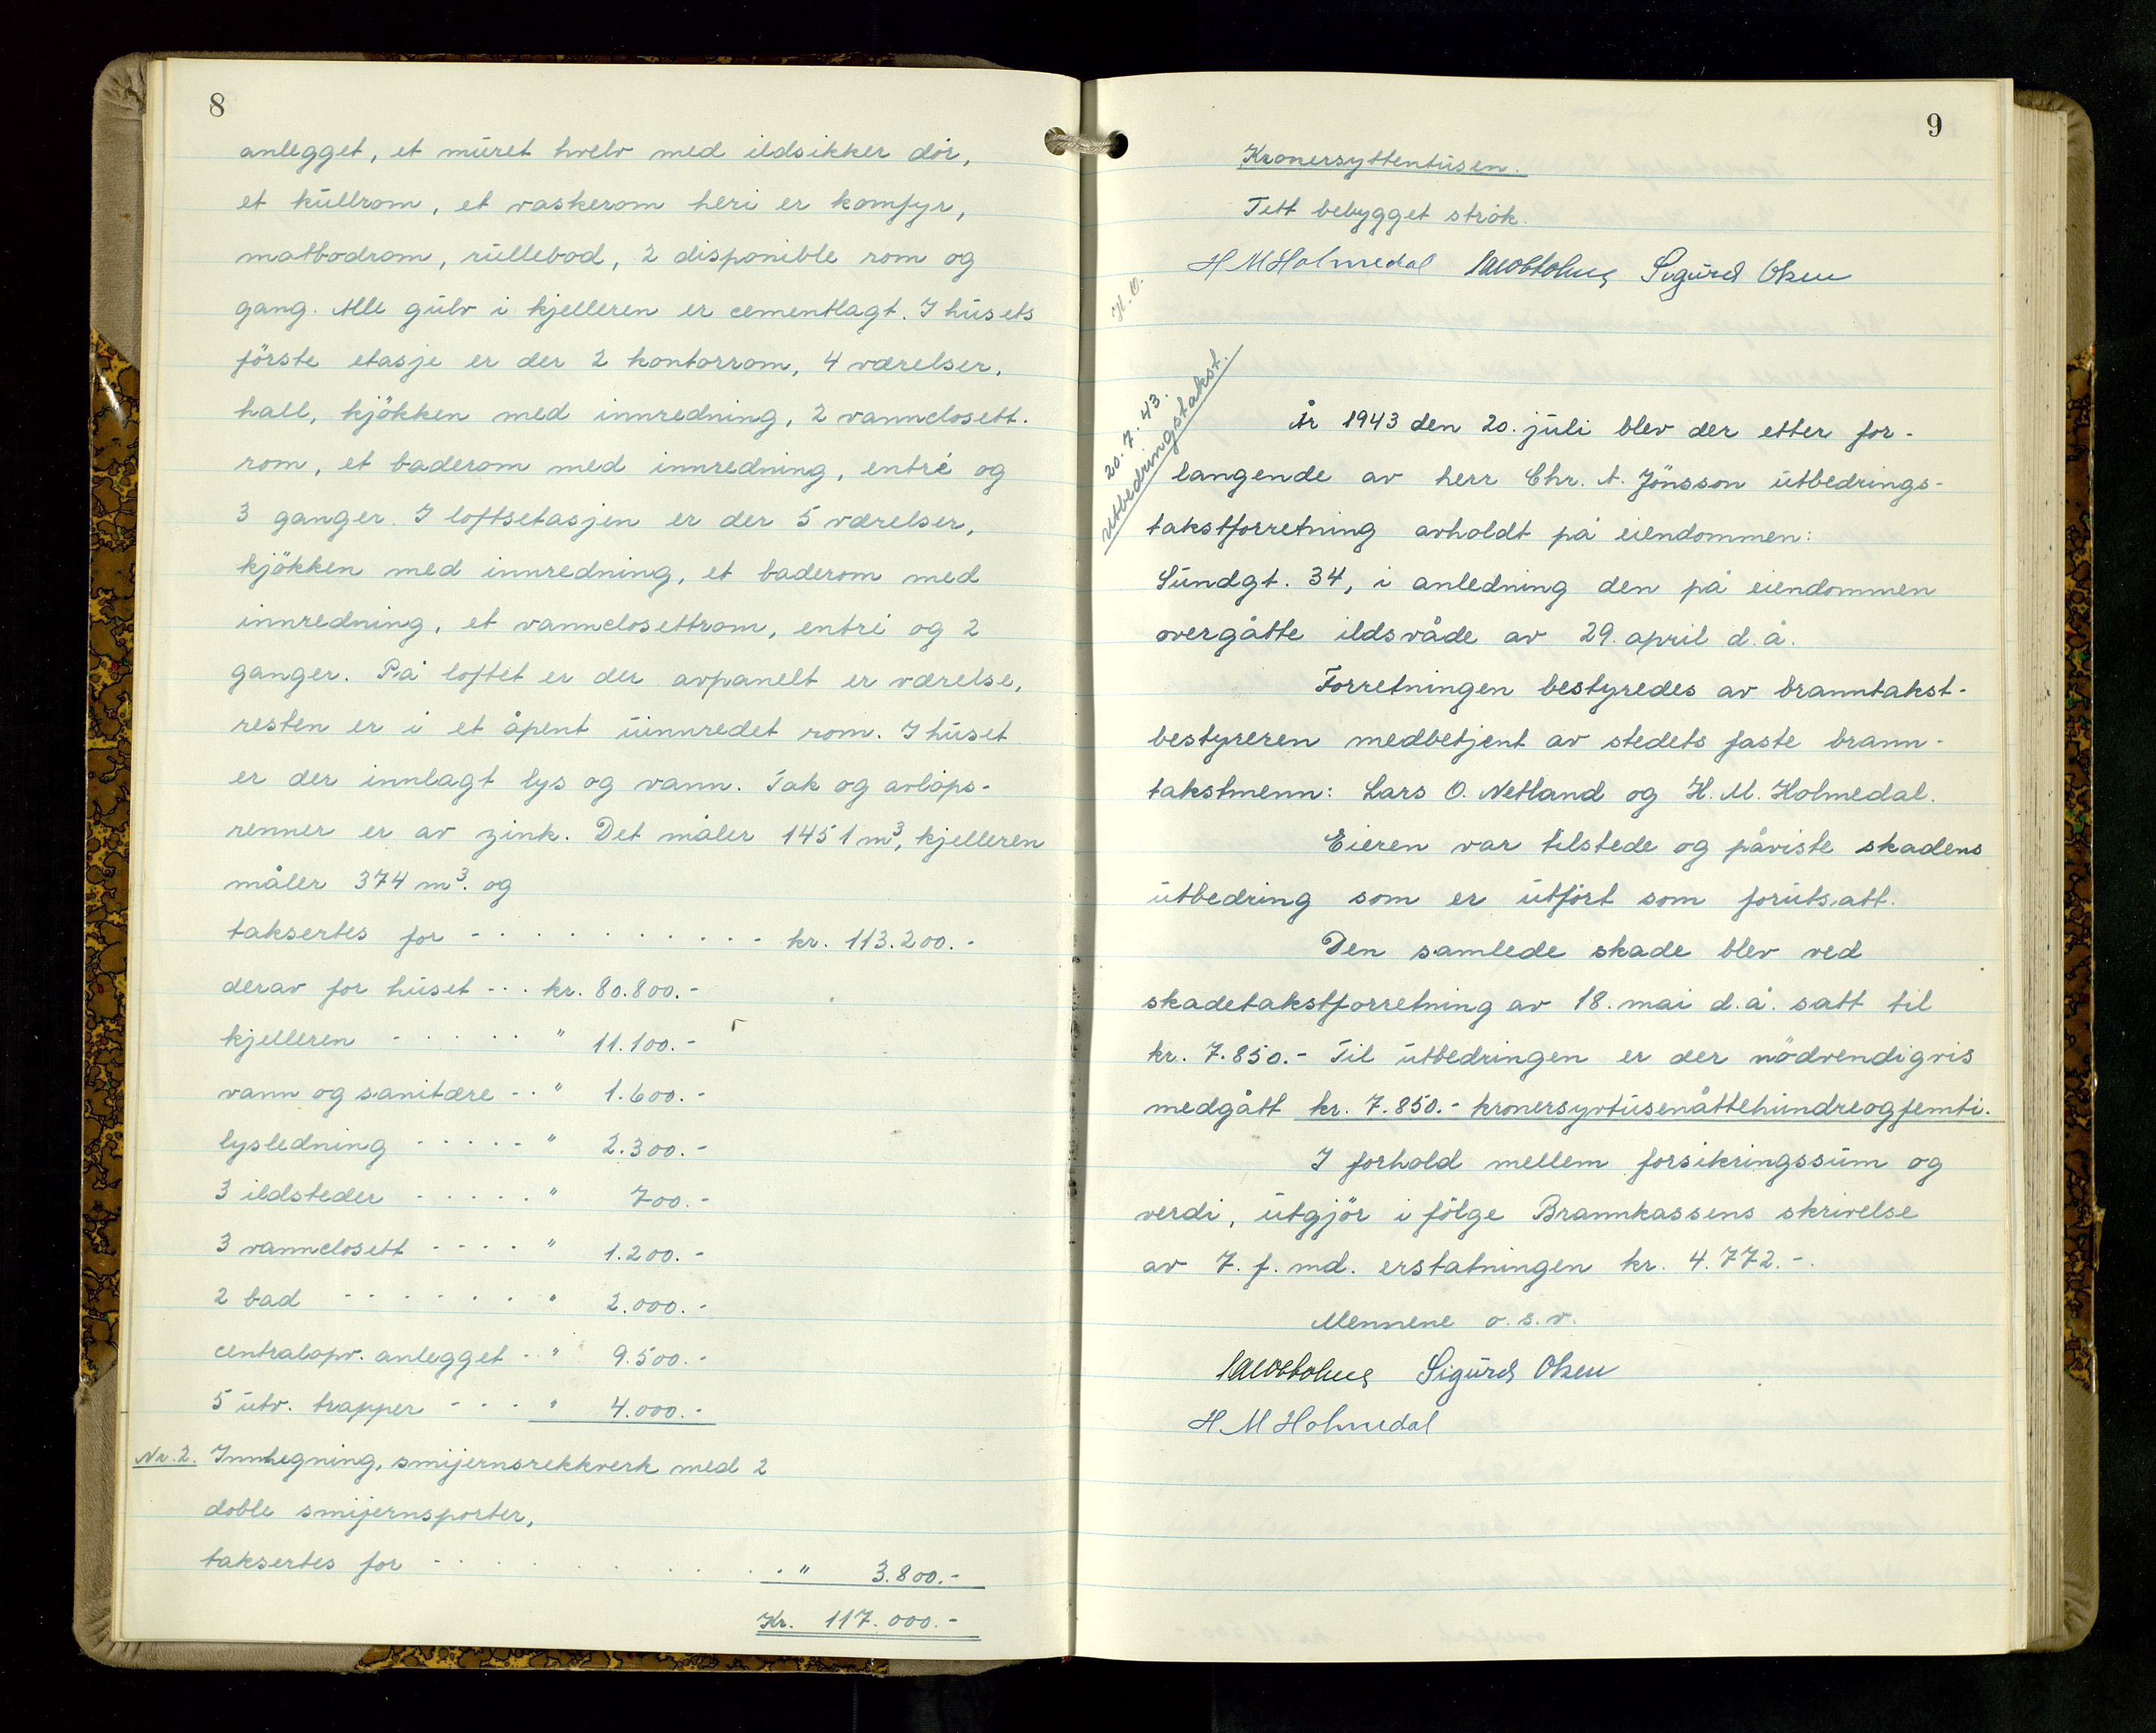 8
anlegget, et muret hvelv med ildsikker dör,
et kullrom, et vaskerom heri er komfyr,
matbodrom, rullebod, 2 disponible rom og
gang. Alle gulv i kjelleren er cementlagt. I husets
förste etasje er der 2 kontorrom, 4 værelser,
hall, kjökken med innredning, 2 vannclosett-
rom, et baderom med innredning, entré og
3 ganger. I loftsetasjen er der 5 værelser,
kjökken med innredning, et baderom med
innredning, et vannclosettrom, entré og 2
ganger. På loftet er der avpanelt er værelse,
resten er i et åpent uinnredet rom. I huset
er der innlagt lys og vann. Tak og avlöps-
renner er av zink. Det måler 1451 m³, kjelleren
måler 374 m³. og
taksertes for - - - - - - - - - - - kr. 113.200.-
derav for huset - - - kr. 80.800.-
kjelleren - - - - - - " 11.100.-
vann og sanitære - - " 1.600.-
lysledning - - - - - " 2.300.-
3 ildsteder - - - - - " 700.-
3 vannclosett - - - - " 1.200.-
2 bad - - - - - - - " 2.000.-
centralopv. anlegget - - " 9.500.-
5 utv. trapper - - - - " 4.000.-
Nr. 2. Innhegning, smijernsrekkverk med 2
doble smijernsporter,
taksertes for - - - - - - - - " 3.800.-
Kr. 117.000.-
9
Kronersyttentusen.
Tett bebygget strök.
H M Holmedal Sigurd Olsen
H. O.
20. 7. 43.
Utbedringstakst.
År 1943 den 20. juli blev der etter for-
langende av herr Chr. A. Jönsson utbedrings-
takstforretning avholdt på eiendommen:
Sundgt. 34, i anledning den på eiendommen
overgåtte ildsvåde av 29. april d.å.
Forretningen bestyredes av branntakst-
bestyreren medbetjent av stedets faste brann-
takstmenn: Lars O. Netland og H. M. Holmedal.
Eieren var tilstede og påviste skadens
utbedring som er utfört som forutsatt.
Den samlede skade blev ved
skadetakstforretning av 18. mai d.å. satt til
kr. 7.850.- Til utbedringen er der nödvendigvis
medgått kr. 7.850.- kronersyvtusenåttehundreogfemti.
I forhold mellem forsikringssum og
verdi, utgjör i fölge Brannkassens skrivelse
av 7. f. md. erstatningen kr. 4.772.-.
Mennene o.s.v.
Sigurd Olsen
H M Holmedal